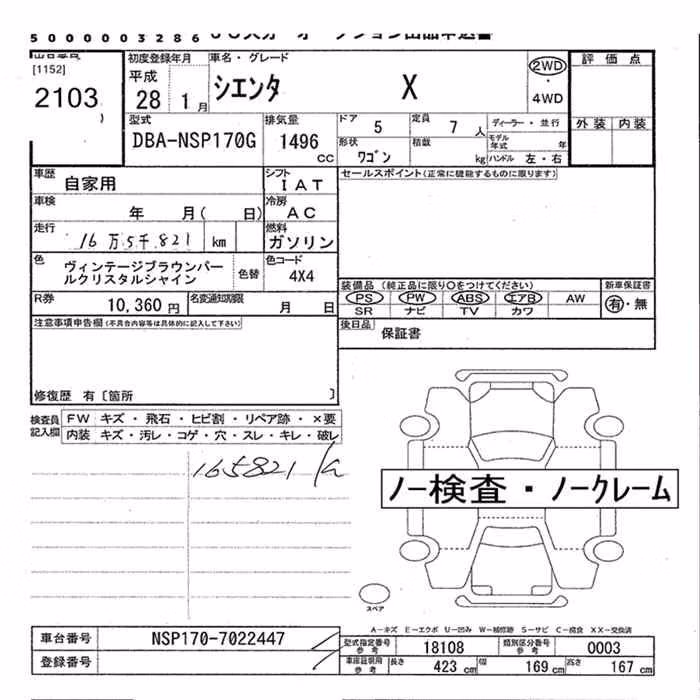 5000003286
[1152]
2103
初度登録年月
平成
28 1月
車名・グレード
シエンタ X
2WD
・
4WD
評価点
外装 内装
型式
DBA-NSP170G
排気量
1496
CC
ドア
5
定員
7人
ディーラー・並行
形状
ワゴン
積載
kg
モデル年式 年
ハンドル 左・右
車歴
自家用
シフト
IAT
セールスポイント(正常に機能するものに限ります)
車検
年 月( 日)
冷房
AC
走行
16万5千821 km
燃料
ガソリン
色
ヴィンテージブラウンパー
ルクリスタルシャイン
色替
色コード
4X4
R券
10,360 円
名変通知期限
月 日
装備品 (純正品に限り○をつけてください)
新車保証書
PS PW ABS エアB AW
SR ナビ TV カワ
有・無
注意事項申告欄(不具合内容等は具体的に記入して下さい)
後日品
保証書
修復歴 有〔箇所 〕
検査員
記入欄
FW キズ・飛石・ヒビ割・リペア跡・×要
内装 キズ・汚レ・コゲ・穴・スレ・キレ・破レ
165821
ノー検査・ノークレーム
スペア
A-キズ E-エクボ U-凹み W-補修跡 S-サビ C-腐食 XX-交換済
車台番号
NSP170-7022447
登録番号
型式指定番号
参考
18108
類別区分番号
参考
0003
車庫証明用
参考
長さ
423 cm
幅
169 cm
高さ
167 cm